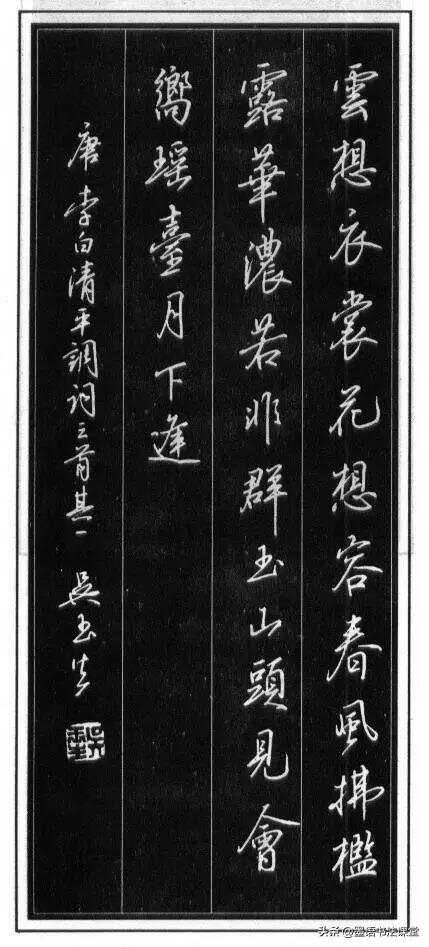 雲想衣裳花想容春風拂檻
露華濃若非群玉山頭見會
嚮瑶臺月下逢
唐李白清平調詞三首其一 吳玉生
头条@墨语书法课堂